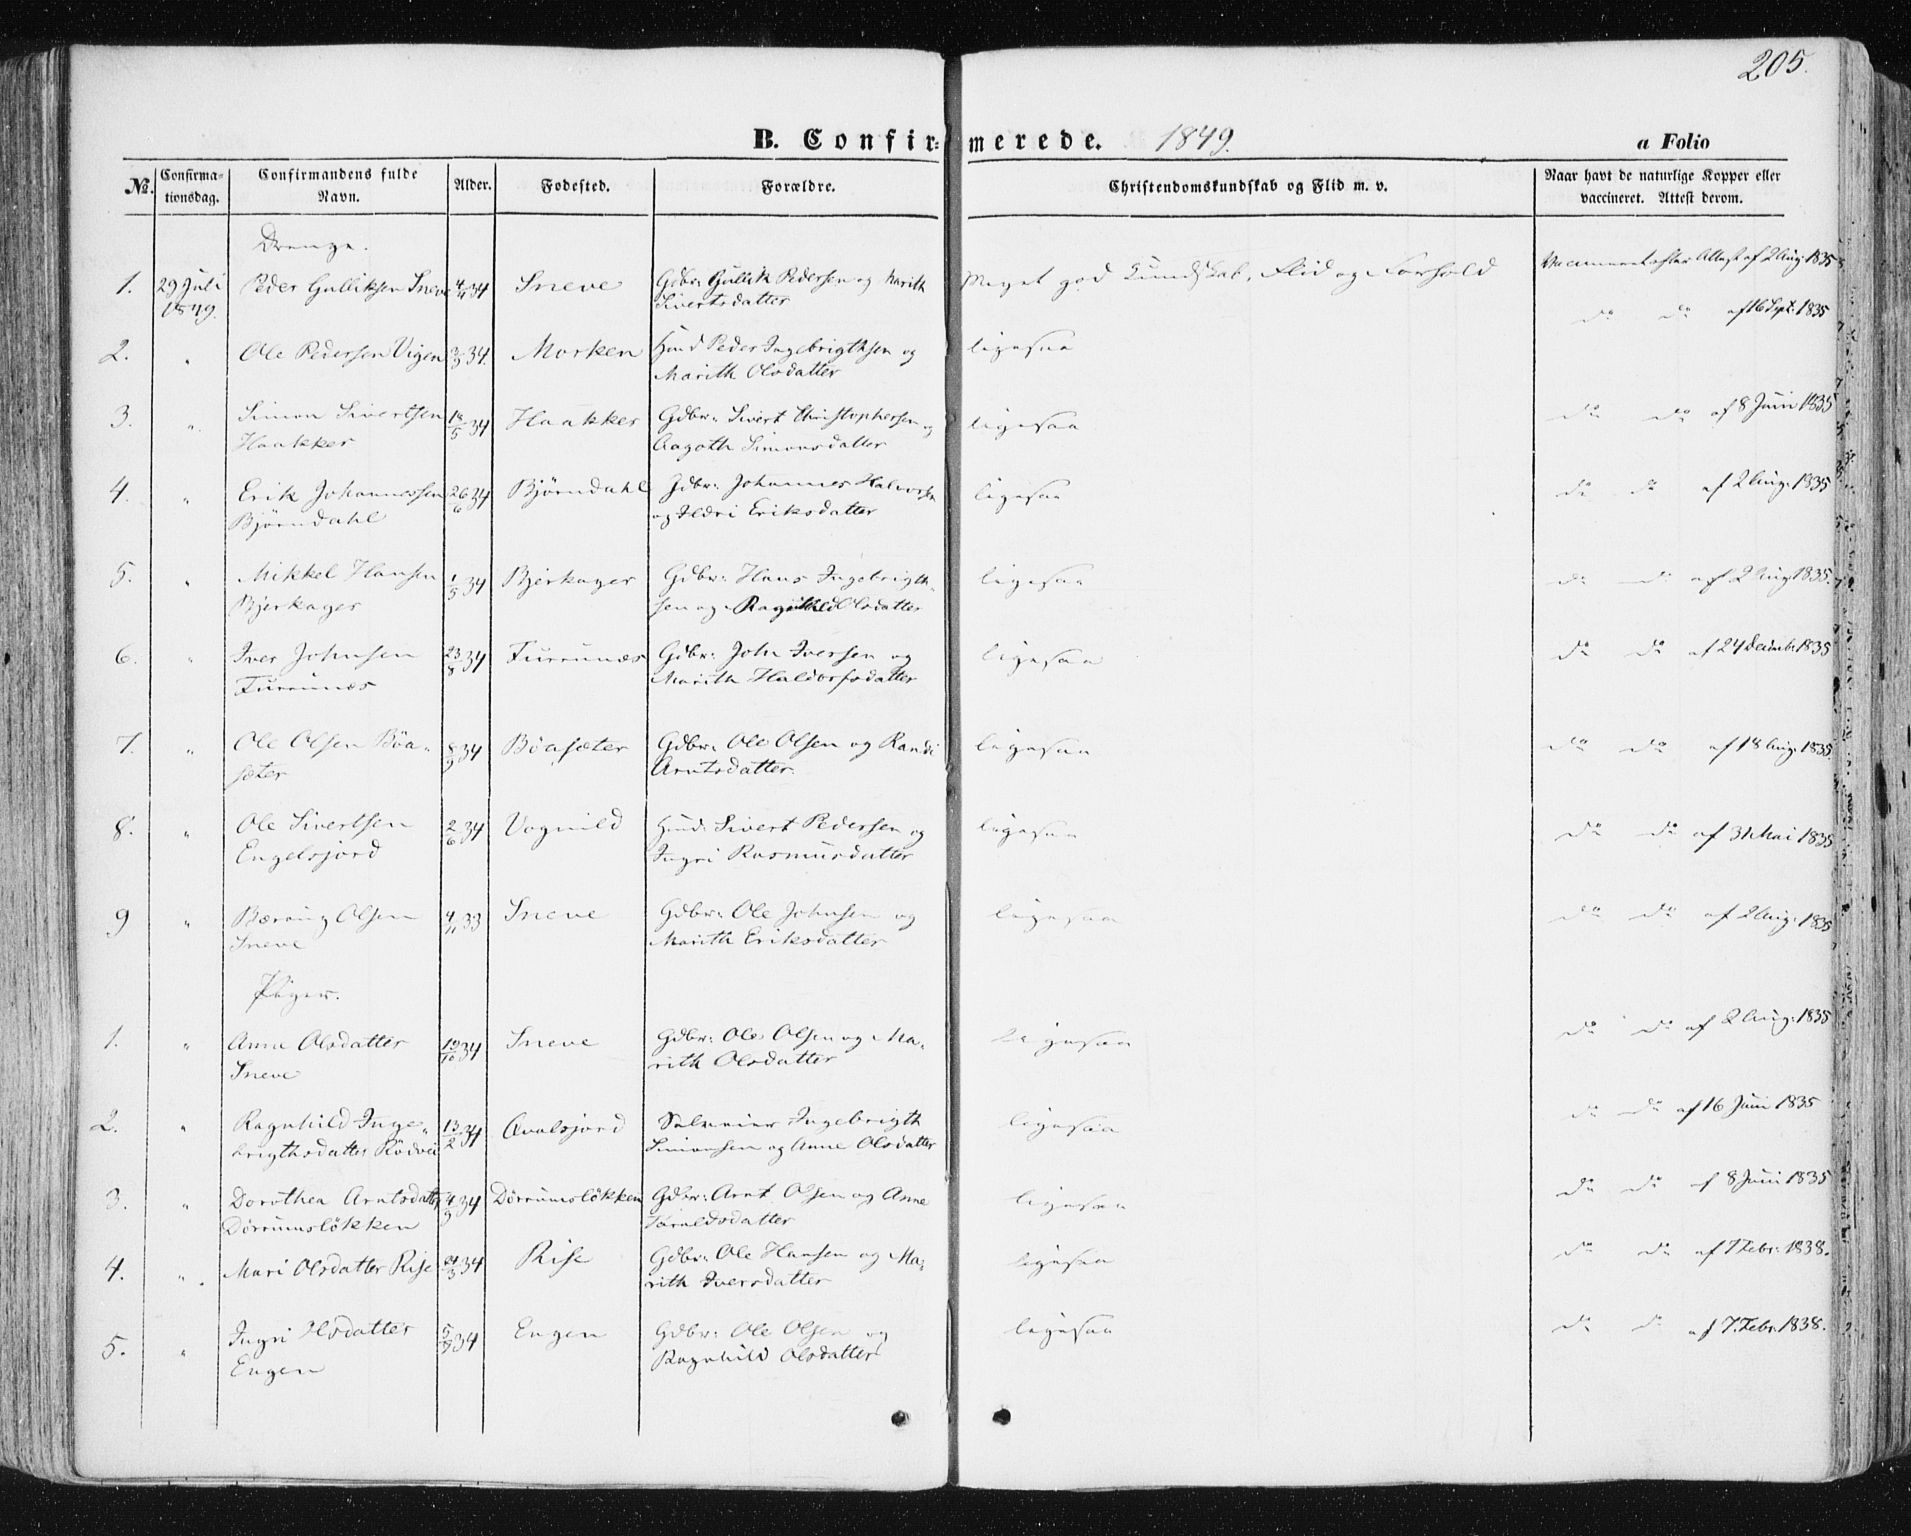 205.
B. Confirmerede. 1849.
a Folio
No. Confirmationsdag. Confirmandens fulde Navn. Alder. Fødested. Forældre. Christendomskundskab og Flid m. v. Naar havt de naturlige Kopper eller vaccineret. Attest derom.
Drenge.
1. 29 Juli 1849. Peder Gulliksen Sneve 4/11 34 Sneve Gdbr: Gullik Pedersen og Marith Sivertsdatter Meget god Kundskab, Flid og Forhold Vaccineret efter Attest af 2 Aug: 1835
2. " Ole Pedersen Vigen 34. Morken Huusmd Peder Ingebrigthsen og Marith Olsdatter ligesaa do do af 16 Sept: 1835
3. " Simon Sivertsen Haakker 18/5 34 Haakker Gdbr: Sivert Christophersen og Aagoth Simonsdatter ligesaa do do af 8 Juni 1835
4. " Erik Johannessen Bjørndahl 26/6 34 Bjørndahl Gdbr: Johannes Halvorsen og Ildri Eriksdatter ligesaa do do af 2 Aug: 1835
5. " Mikkel Hansen Bjerkager 1/5 34 Bjerkager Gdbr: Hans Ingebrigthsen og Ragnhild Olsdatter ligesaa do do af 2 Aug 1835.
6. " Iver Johnsen Furrunæs 23/8 34 Furrunæs Gdbr: John Iversen og Marith Haldorsdatter ligesaa do do af 24 Decembr 1835
7. " Ole Olsen Böasæter 8/9 34 Böasæter Gdbr: Ole Olsen og Randi Arntsdatter. ligesaa do do af 18 Aug: 1835
8. " Ole Sivertsen Engelsjord 2/6 34 Vognild Huusmd: Sivert Pedersen og Ingri Rasmusdatter ligesaa do do af 31 Mai 1835
9 " Bæraug Olsen Sneve 4/11 33 Sneve Gdbr: Ole Johnsen og Marith Eriksdatter ligesaa do do af 2 Aug: 1835
Piger.
1. " Anne Olsdatter Sneve 19/10 34 Sneve Gdbr: Ole Olsen og Marith Olsdatter Ligesaa do do af 2 Aug: 1835
2. " Ragnhild Ingebrigthsdatter Rödvei 13/2 34 Aualsjord Ingebrigth Simonsen og Anne Olsdatter ligesaa do do af 16 Juni 1835
3. " Dorothea Arntsdatter Dörrumslökken 4/9 34 Dörrumslökken Gdbr: Arnt Olsen og Anne ligesaa do do af 8 Juni 1835
4. " Mari Olsdatter Rise 34 Rise Gdbr: Ole Hansen og Marith Iversdatter ligesaa do do af 7 Febr: 1838.
5. " Ingri Olsdatter Engen 34 Engen Gdbr: Ole Olsen og Ragnhild Olsdatter ligesaa do do af 7. Febr. 1838.